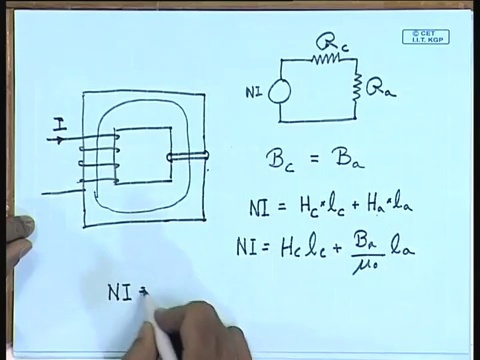 © CET
I.I.T. KGP
R_c
NI
R_a
I
B_c = B_a
NI = H_c * l_c + H_a * l_a
NI = H_c l_c + B_a/μ_0 l_a
NI =